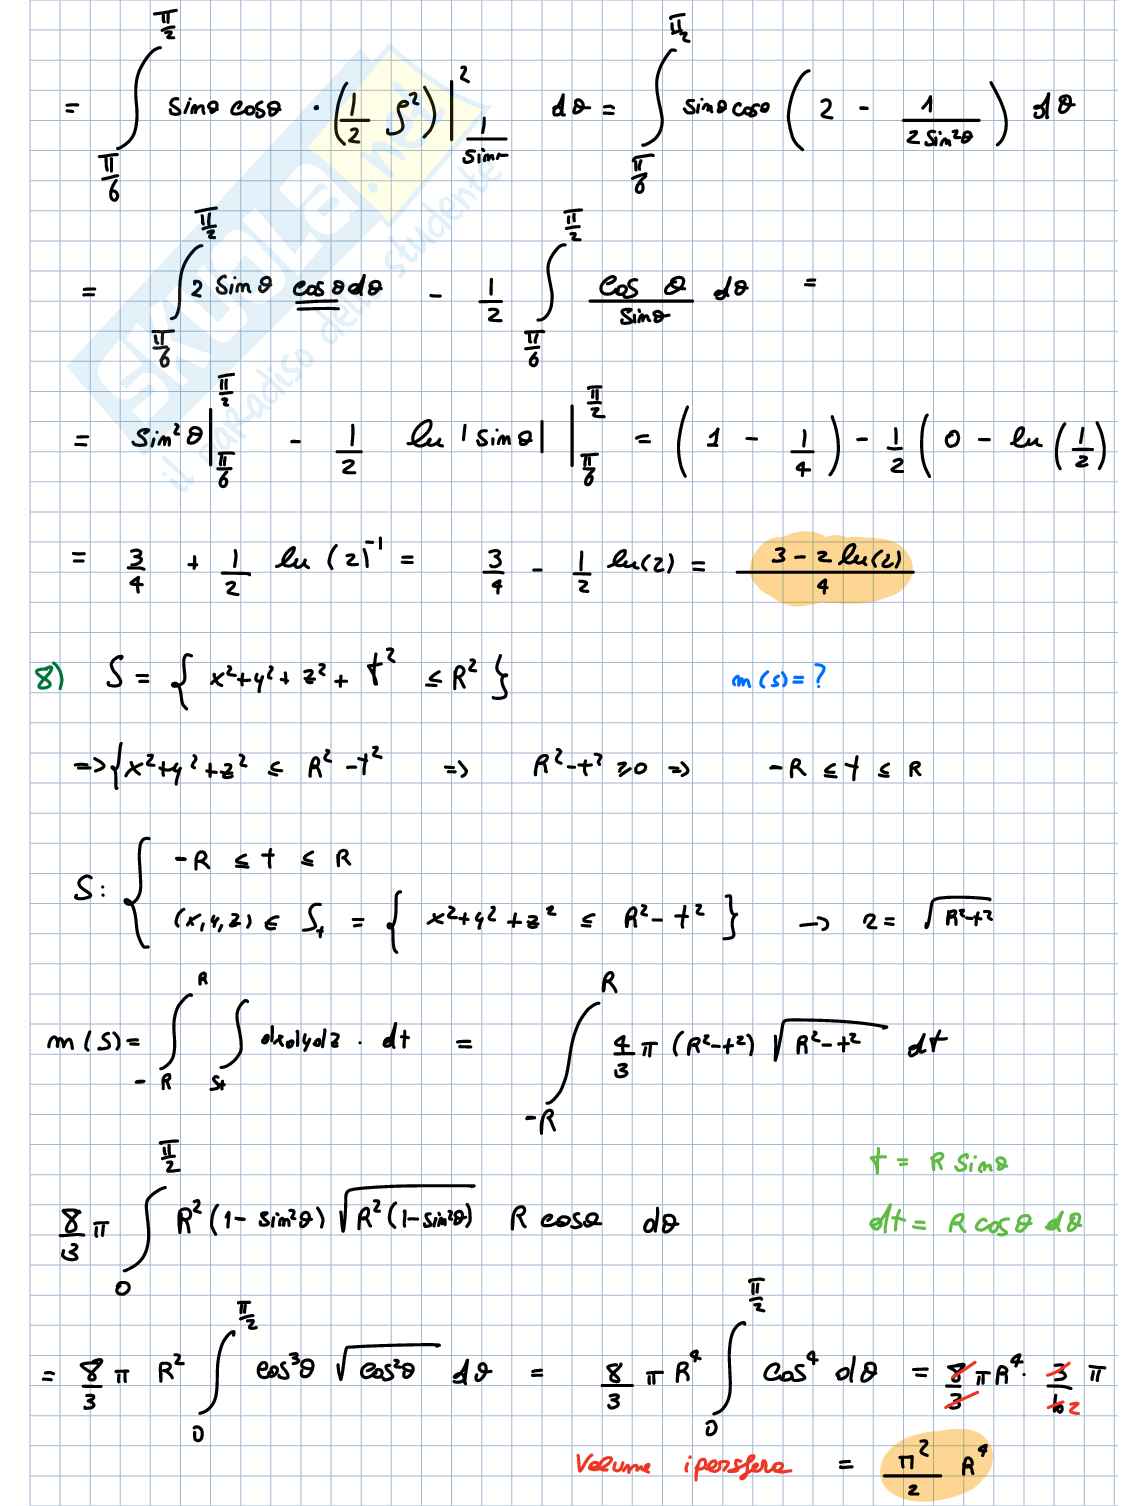 = ∫_{π/6}^{π/2} sinθ cosθ · (1/2 ρ²) |_{1/sin}^{2} dθ = ∫_{π/6}^{π/2} sinθ cosθ (2 - 1/(2 sin²θ)) dθ
= ∫_{π/6}^{π/2} 2 sinθ cosθ dθ - 1/2 ∫_{π/6}^{π/2} cos θ / sinθ dθ =
= sin²θ |_{π/6}^{π/2} - 1/2 ln |sinθ| |_{π/6}^{π/2} = (1 - 1/4) - 1/2 (0 - ln (1/2)
= 3/4 + 1/2 ln (2)^{-1} = 3/4 - 1/2 ln(2) = (3 - 2 ln(2))/4
8) S = { x²+y²+z²+t² ≤ R² } m(s)=?
=> { x²+y²+z² ≤ R²-t² => R²-t² ≥0 => -R ≤ t ≤ R
S: { -R ≤ t ≤ R
(x,y,z) ∈ S_t = { x²+y²+z² ≤ R²-t² } -> r = √(R²-t²)
m(S)= ∫_{-R}^{R} ∫_{St} dxdydz · dt = ∫_{-R}^{R} 4/3 π (R²-t²) √(R²-t²) dt
t = R sinθ
8/3 π ∫_{0}^{π/2} R² (1-sin²θ) √(R²(1-sin²θ)) R cosθ dθ
dt = R cosθ dθ
= 8/3 π R² ∫_{0}^{π/2} cos³θ √(cos²θ) dθ = 8/3 π R⁴ ∫_{0}^{π/2} cos⁴ dθ = 8/3 π R⁴ · 3/16 2 π
Volume ipersfera = π²/2 R⁴
SKUOLA.net
il paradiso dello studente